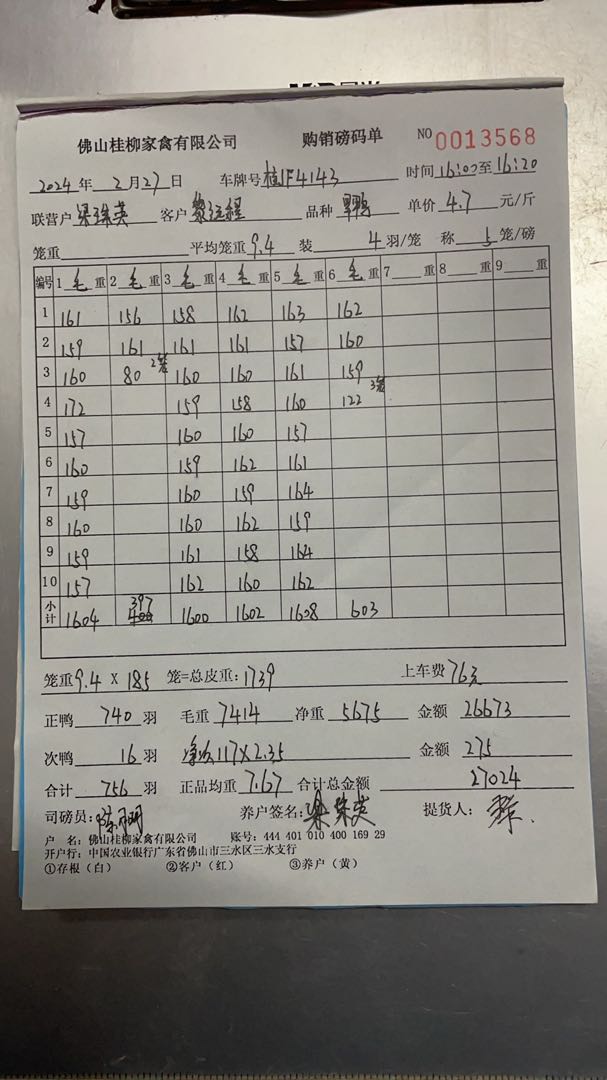 佛山桂柳家禽有限公司 购销磅码单 NO 0013568
2024 年 2 月 27 日 车牌号 桂JF4143 时间 16:00 至 16:20
联营户 梁珠英 客户 品种 单价 4.7 元/斤
笼重 平均笼重 9.4 装 4 羽/笼 称 5 笼/磅
编号 1 毛 重 2 毛 重 3 毛 重 4 毛 重 5 毛 重 6 毛 重 7 重 8 重 9 重
1 161 156 158 162 163 162
2 159 161 161 161 157 160
3 160 80 2笼 160 160 161 159
4 172 159 158 160 122 3笼
5 157 160 160 157
6 160 159 162 161
7 159 160 159 164
8 160 160 162 159
9 159 161 158 164
10 157 162 160 162
小计 1604 397 1600 1602 1608 603
笼重 9.4 X 185 笼=总皮重: 1739 上车费 763
正鸭 740 羽 毛重 7414 净重 5675 金额 26673
次鸭 16 羽 117X2.35 金额 275
合计 756 羽 正品均重 7.67 合计总金额 27024
司磅员: 养户签名: 梁珠英 提货人:
户 名: 佛山桂柳家禽有限公司 账号: 444 401 010 400 169 29
开户行: 中国农业银行广东省佛山市三水区三水支行
①存根（白） ②客户（红） ③养户（黄）